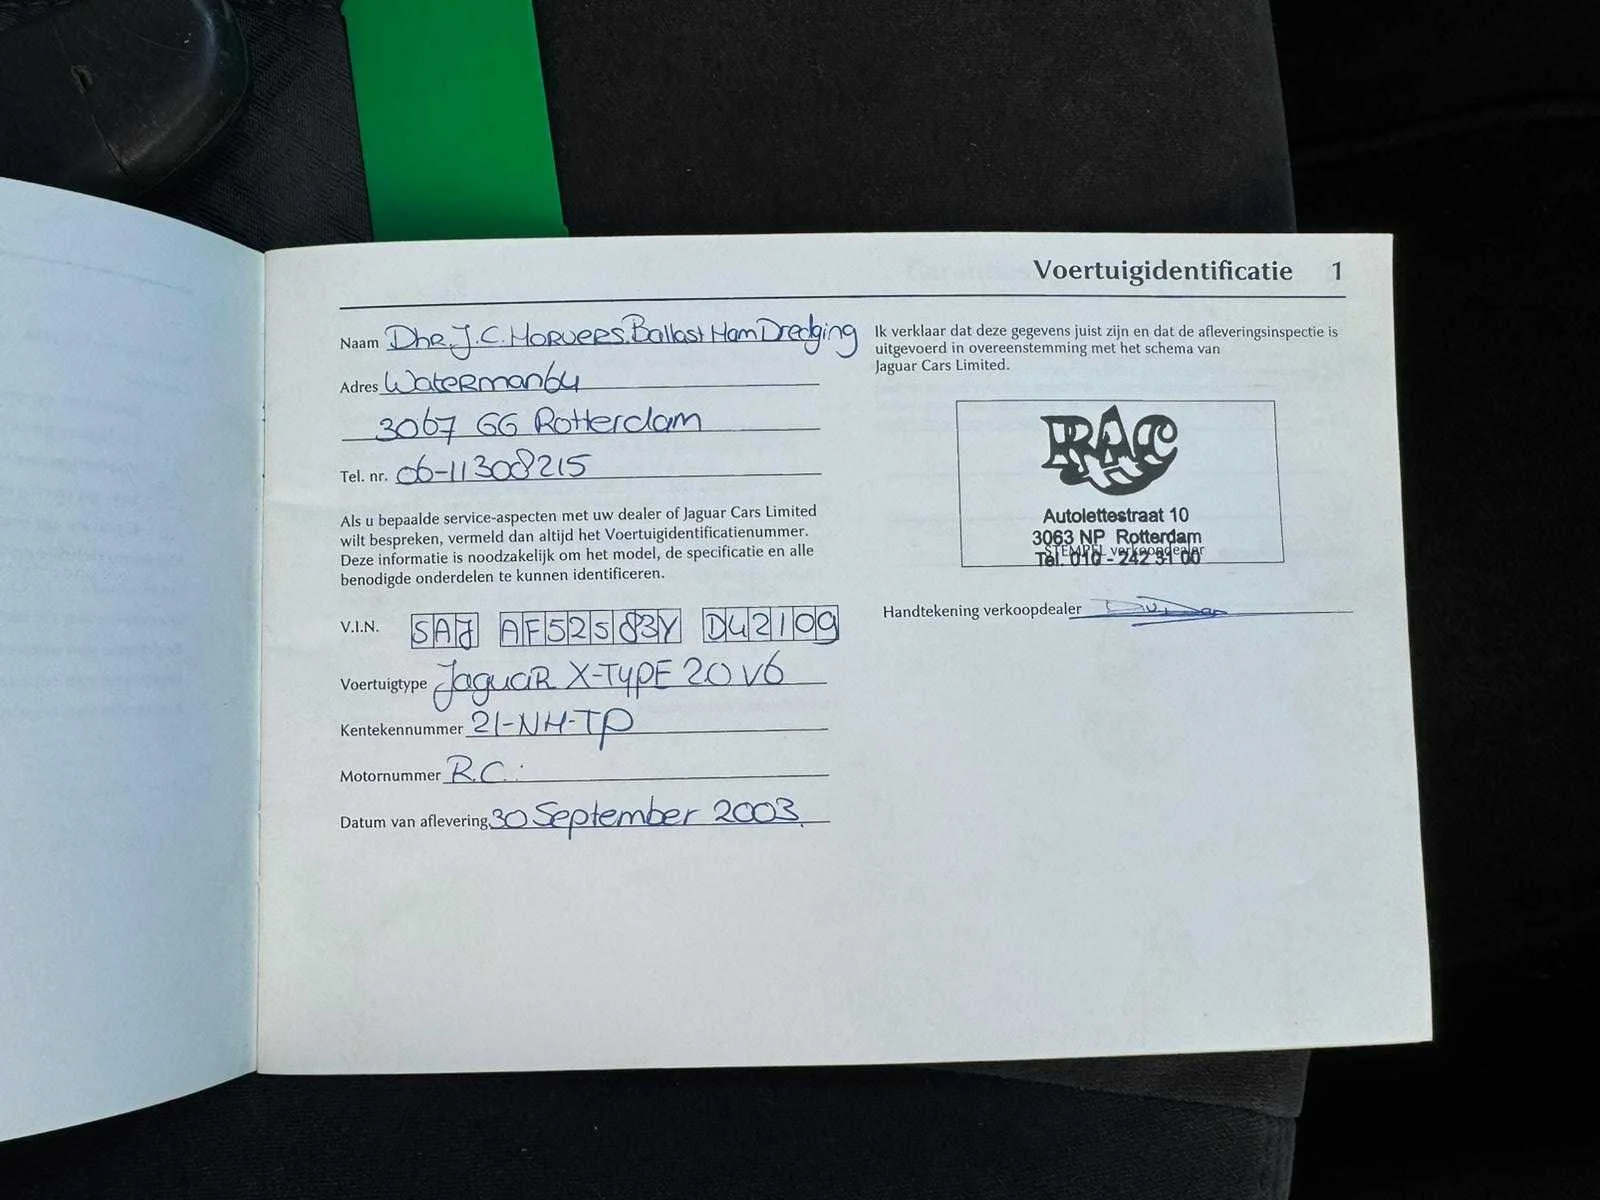 Voertuigidentificatie 1
Naam Dhr. J.C. Horvers. Ballast Ham Dredging
Adres Waterman 64
3067 GG Rotterdam
Tel. nr. 06-11308215
Als u bepaalde service-aspecten met uw dealer of Jaguar Cars Limited
wilt bespreken, vermeld dan altijd het Voertuigidentificatienummer.
Deze informatie is noodzakelijk om het model, de specificatie en alle
benodigde onderdelen te kunnen identificeren.
V.I.N. SAJ AF52583Y D42109
Voertuigtype Jaguar X-TYPE 20 V6
Kentekennummer 21-NH-TP
Motornummer R.C.
Datum van aflevering 30 September 2003.
Ik verklaar dat deze gegevens juist zijn en dat de afleveringsinspectie is
uitgevoerd in overeenstemming met het schema van
Jaguar Cars Limited.
RAC
Autolettestraat 10
3063 NP Rotterdam
STEMPEL verkoopdealer
Tel. 010 - 242 31 00
Handtekening verkoopdealer